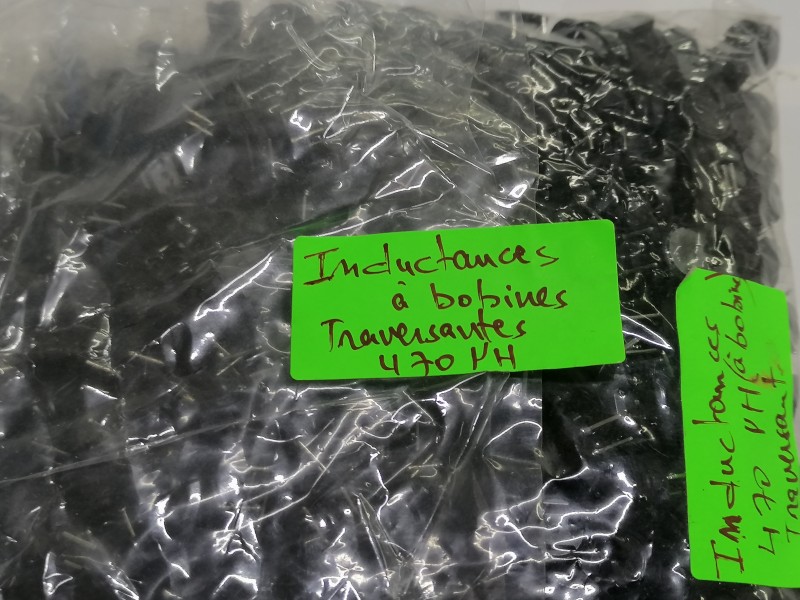 Inductances
à bobines
Traversantes
470 µH
Inductances
470 µH à bobines
Traversant.